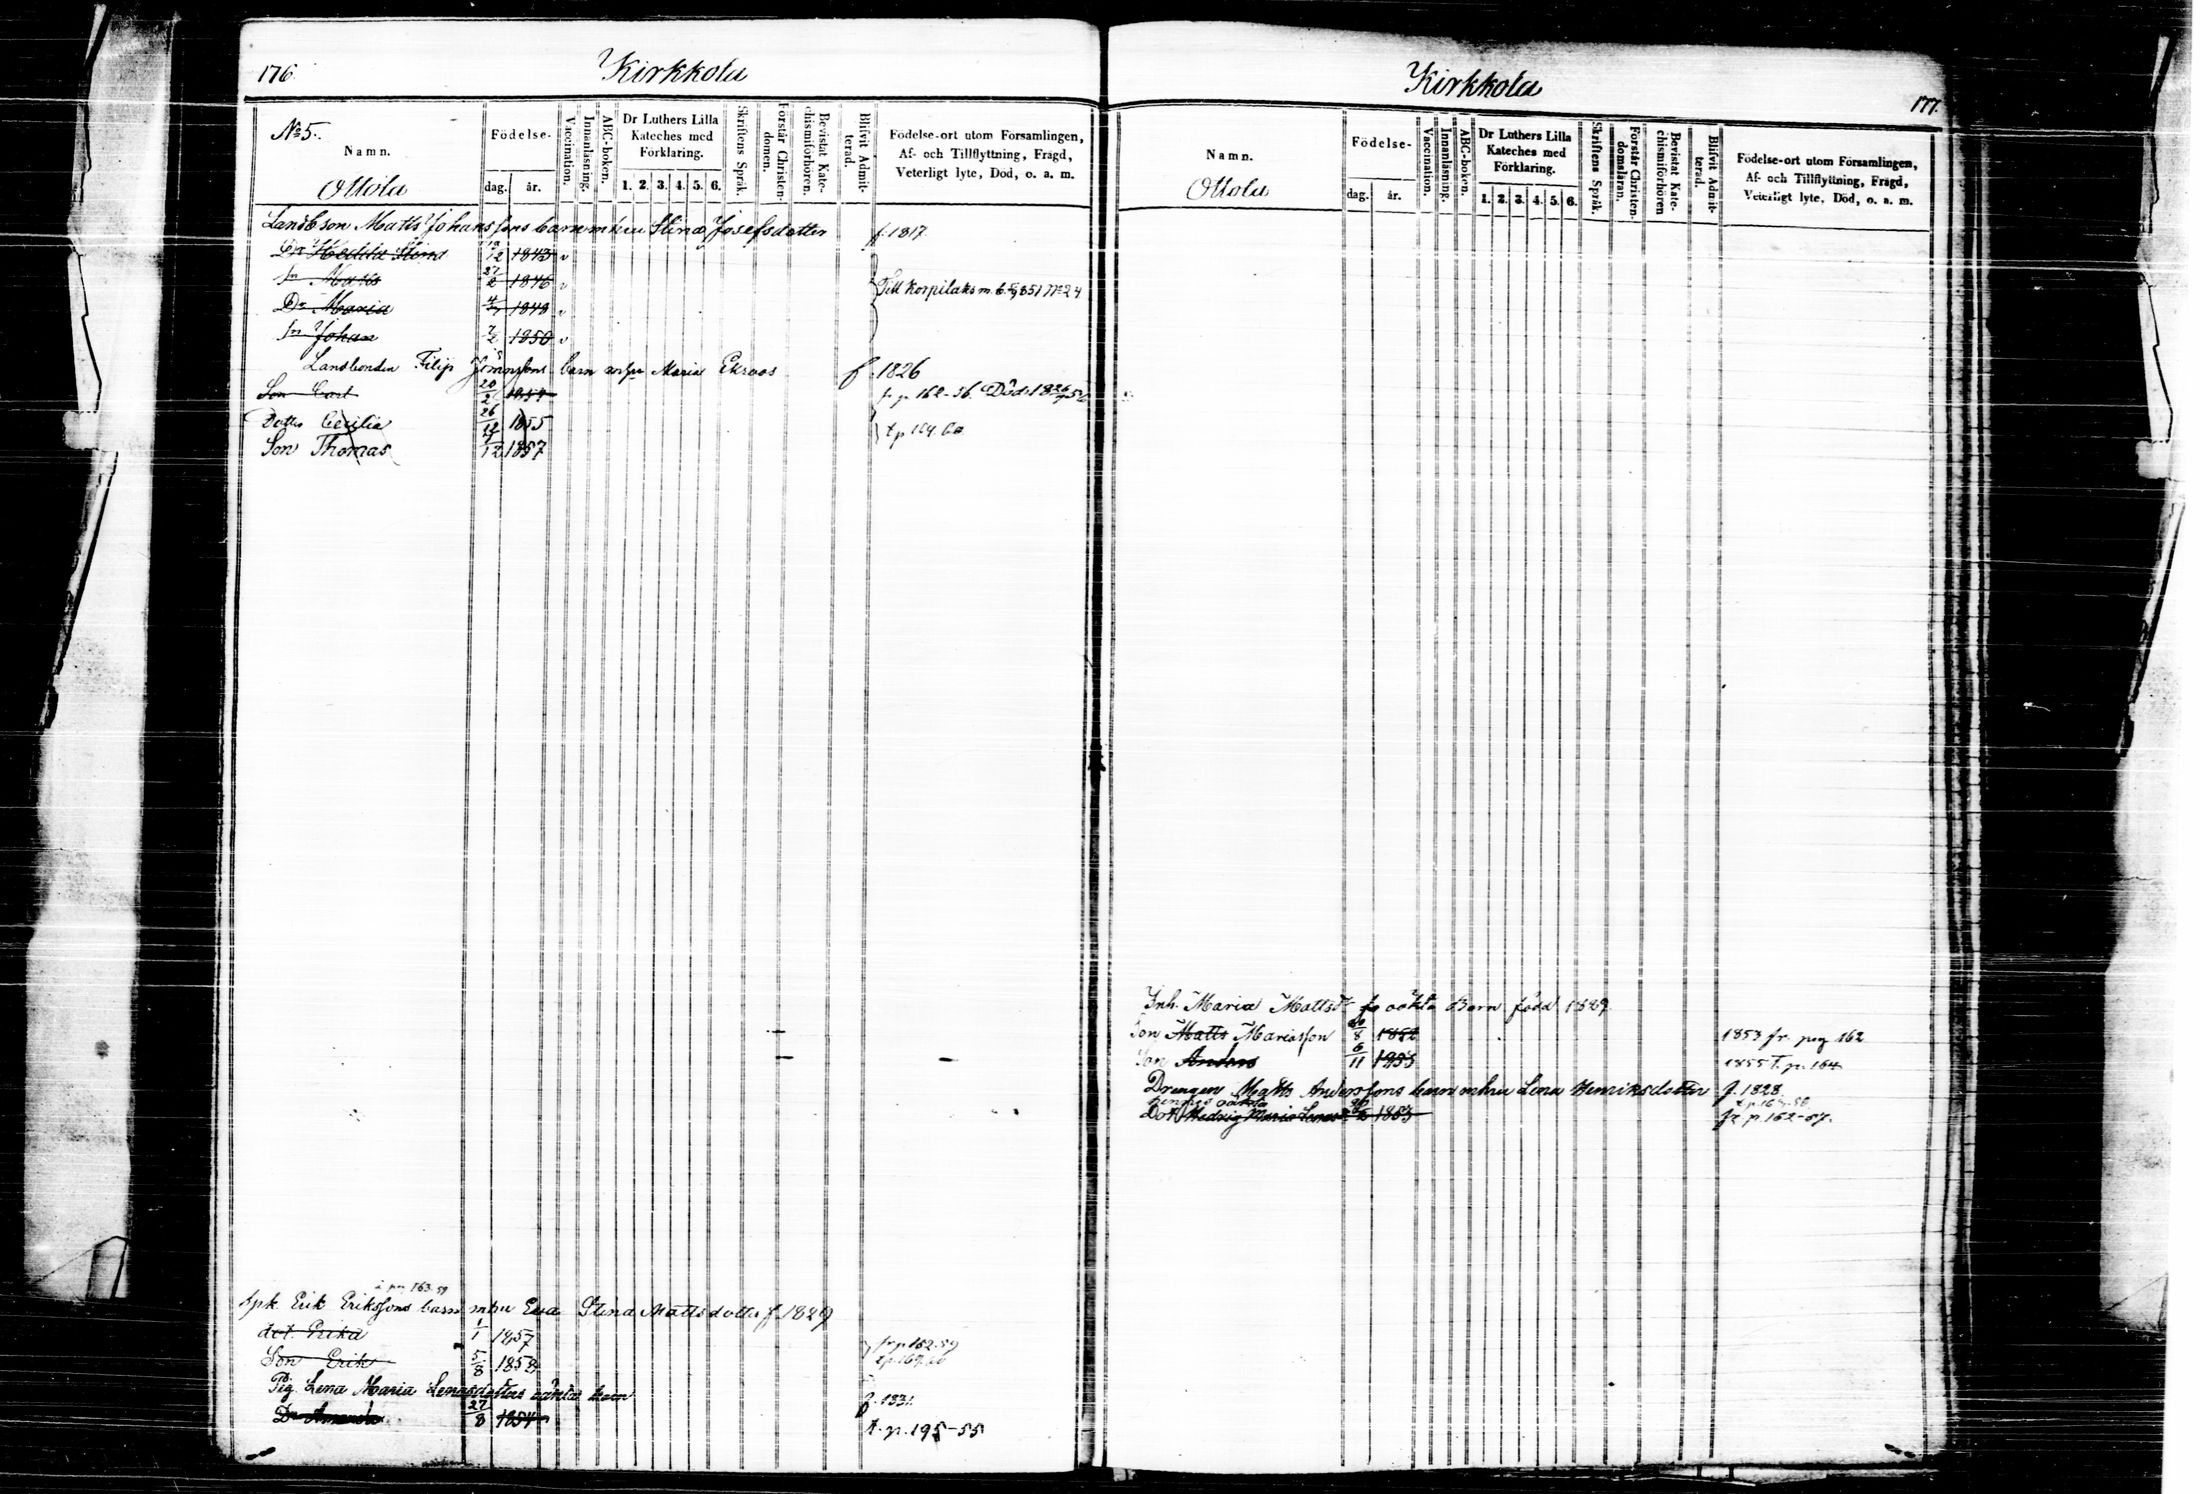 176.
Kirkkola
No 5.
Namn.
Ottola
Födelse-
dag. år.
Vaccination.
Innanläsning.
ABC-boken.
Dr Luthers Lilla Kateches med Förklaring.
1. 2. 3. 4. 5. 6.
Skriftens Språk.
Förstår Christendomen.
Bevistat Katechismiförhören.
Blifvit Admitterad.
Födelse-ort utom Församlingen,
Af- och Tillflyttning, Frägd,
Veterligt lyte, Död, o. a. m.
Landb son Matts Johanssons barn m hu Stina Josefsdotter f. 1817.
Dr Hedda Stina 12 1843 v
Sn Matts 27/2 1846 v
Till Korpilaks m. b. 1851 No 24
Dr Maria 4 1848 v
Sn Johan 7/2 1850 v
Landbonden Filip barn m hu Maria Ekroos f. 1826
Son Carl 20/2 fr p. 162-56. Död
Dotter Cecilia 26/12 1855
Son Thomas 7/12 1857
à pn 163.59
Spk. Erik Erikssons barn m hu Eva Stina Mattsdotter f. 1829
dot. Erika 1/1 1857
fr p 162.59
Son Erik 5/8 1858
Pig Lena Maria Lenasdotters oäkta barn f. 1831
Dr Amanda 27/8 1854
t. p. 195-55
Kirkkola
177.
Namn.
Ottola
Födelse-
dag. år.
Vaccination.
Innanläsning.
ABC-boken.
Dr Luthers Lilla Kateches med Förklaring.
1. 2. 3. 4. 5. 6.
Skriftens Språk.
Förstår Christendomsläran.
Bevistat Katechismiförhören
Blifvit Admitterad.
Födelse-ort utom Församlingen,
Af- och Tillflyttning, Frägd,
Veterligt lyte, Död, o. a. m.
Inh. Maria Mattsdr oäkta Barn född 1829
Son Matts Mariasson 8 1852 1853 fr. pag 162
Son Anders 6/11 1853 1855 T. p. 164
Drengen Matts Anderssons barn m hu Lena Henriksdotter f. 1828
hennes oäkta
Dot Hedvig Maria 1853
fr p. 162-57.